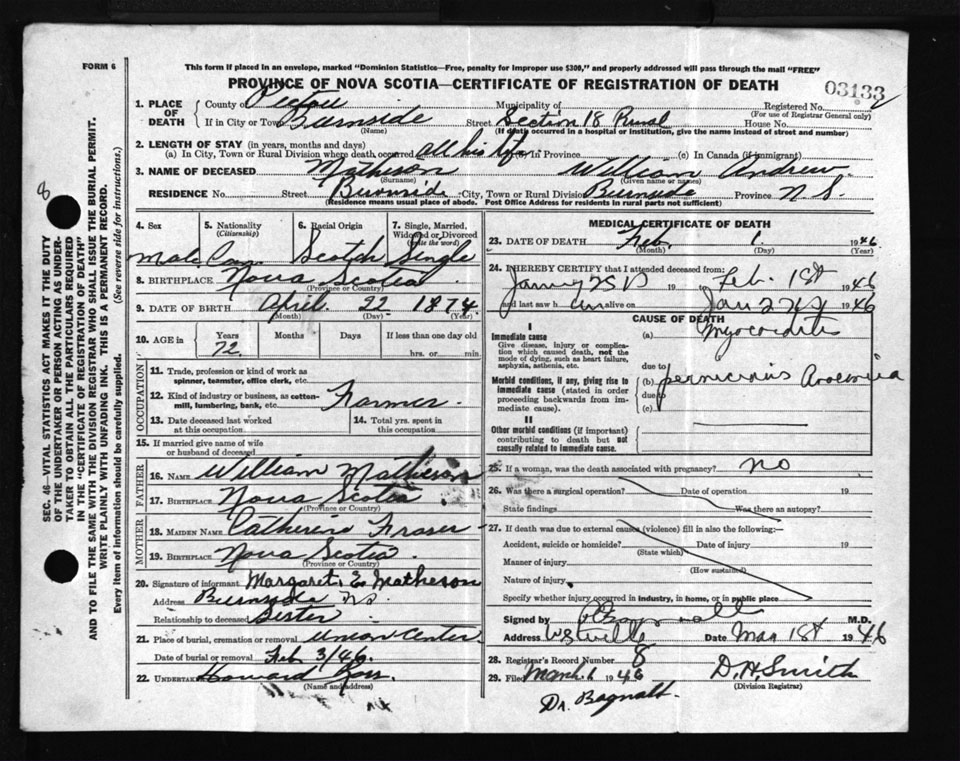 FORM 6
This form if placed in an envelope, marked "Dominion Statistics—Free, penalty for improper use $300," and properly addressed will pass through the mail "FREE"
PROVINCE OF NOVA SCOTIA—CERTIFICATE OF REGISTRATION OF DEATH
03133
1. PLACE OF DEATH
County of Pictou Municipality of Registered No.
(For use of Registrar General only)
If in City or Town Burnside Street Section 18 Rural House No.
(Name) (If death occurred in a hospital or institution, give the name instead of street and number)
2. LENGTH OF STAY (in years, months and days)
(a) In City, Town or Rural Division where death occurred all his life In Province (c) In Canada (if immigrant)
3. NAME OF DECEASED Matheson William Andrew
(Surname) (Given name or names)
RESIDENCE No. Street Burnside City, Town or Rural Division Burnside Province N.S.
(Residence means usual place of abode. Post Office Address for residents in rural parts not sufficient)
4. Sex 5. Nationality 6. Racial Origin 7. Single, Married,
(Citizenship) Widowed or Divorced
(write the word)
Male Can. Scotch Single
8. BIRTHPLACE Nova Scotia
(Province or Country)
9. DATE OF BIRTH April 22 1874
(Month) (Day) (Year)
10. AGE in Years Months Days If less than one day old
72 hrs. or min.
OCCUPATION
11. Trade, profession or kind of work as
spinner, teamster, office clerk, etc.
12. Kind of industry or business, as cotton-
mill, lumbering, bank, etc. Farmer
13. Date deceased last worked 14. Total yrs. spent in
at this occupation this occupation
15. If married give name of wife
or husband of deceased
FATHER
16. NAME William Matheson
17. BIRTHPLACE Nova Scotia
(Province or Country)
MOTHER
18. MAIDEN NAME Catherine Fraser
19. BIRTHPLACE Nova Scotia
(Province or Country)
20. Signature of informant Margaret E. Matheson
Address Burnside NS
Relationship to deceased Sister
21. Place of burial, cremation or removal Union Center
Date of burial or removal Feb 3/46
22. UNDERTAKER Howard Ross
(Name and address)
MEDICAL CERTIFICATE OF DEATH
23. DATE OF DEATH Feb. 1. 1946
(Month) (Day) (Year)
24. I HEREBY CERTIFY that I attended deceased from:
19 Feb 1st 1946
and last saw h alive on Jan 1946
CAUSE OF DEATH
I
Immediate cause
Give disease, injury or complica-
tion which caused death, not the
mode of dying, such as heart failure,
asphyxia, asthenia, etc.
(a) Myocarditis
due to
Morbid conditions, if any, giving rise to
immediate cause (stated in order
proceeding backwards from im-
mediate cause).
(b) pernicious Anaemia
due to
(c)
II
Other morbid conditions (if important)
contributing to death but not
causally related to immediate cause.
25. If a woman, was the death associated with pregnancy? no
26. Was there a surgical operation? Date of operation 19
State findings Was there an autopsy?
27. If death was due to external causes (violence) fill in also the following:—
Accident, suicide or homicide? Date of injury 19
(State which)
Manner of injury
(How sustained)
Nature of injury
Specify whether injury occurred in industry, in home, or in public place
Signed by M.D.
Address Date Mar 1st 1946
28. Registrar's Record Number 8
29. Filed March 1 1946 D.H. Smith
(Division Registrar)
Dr. Bagnall.
8
SEC. 46—VITAL STATISTICS ACT MAKES IT THE DUTY
OF THE UNDERTAKER OR PERSON ACTING AS UNDER-
TAKER TO OBTAIN ALL THE PARTICULARS REQUIRED
IN THE "CERTIFICATE OF REGISTRATION OF DEATH"
AND TO FILE THE SAME WITH THE DIVISION REGISTRAR WHO SHALL ISSUE THE BURIAL PERMIT.
WRITE PLAINLY WITH UNFADING INK. THIS IS A PERMANENT RECORD.
Every item of information should be carefully supplied. (See reverse side for instructions.)